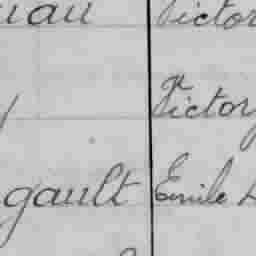 uau Victor
y Victor
gault Emile